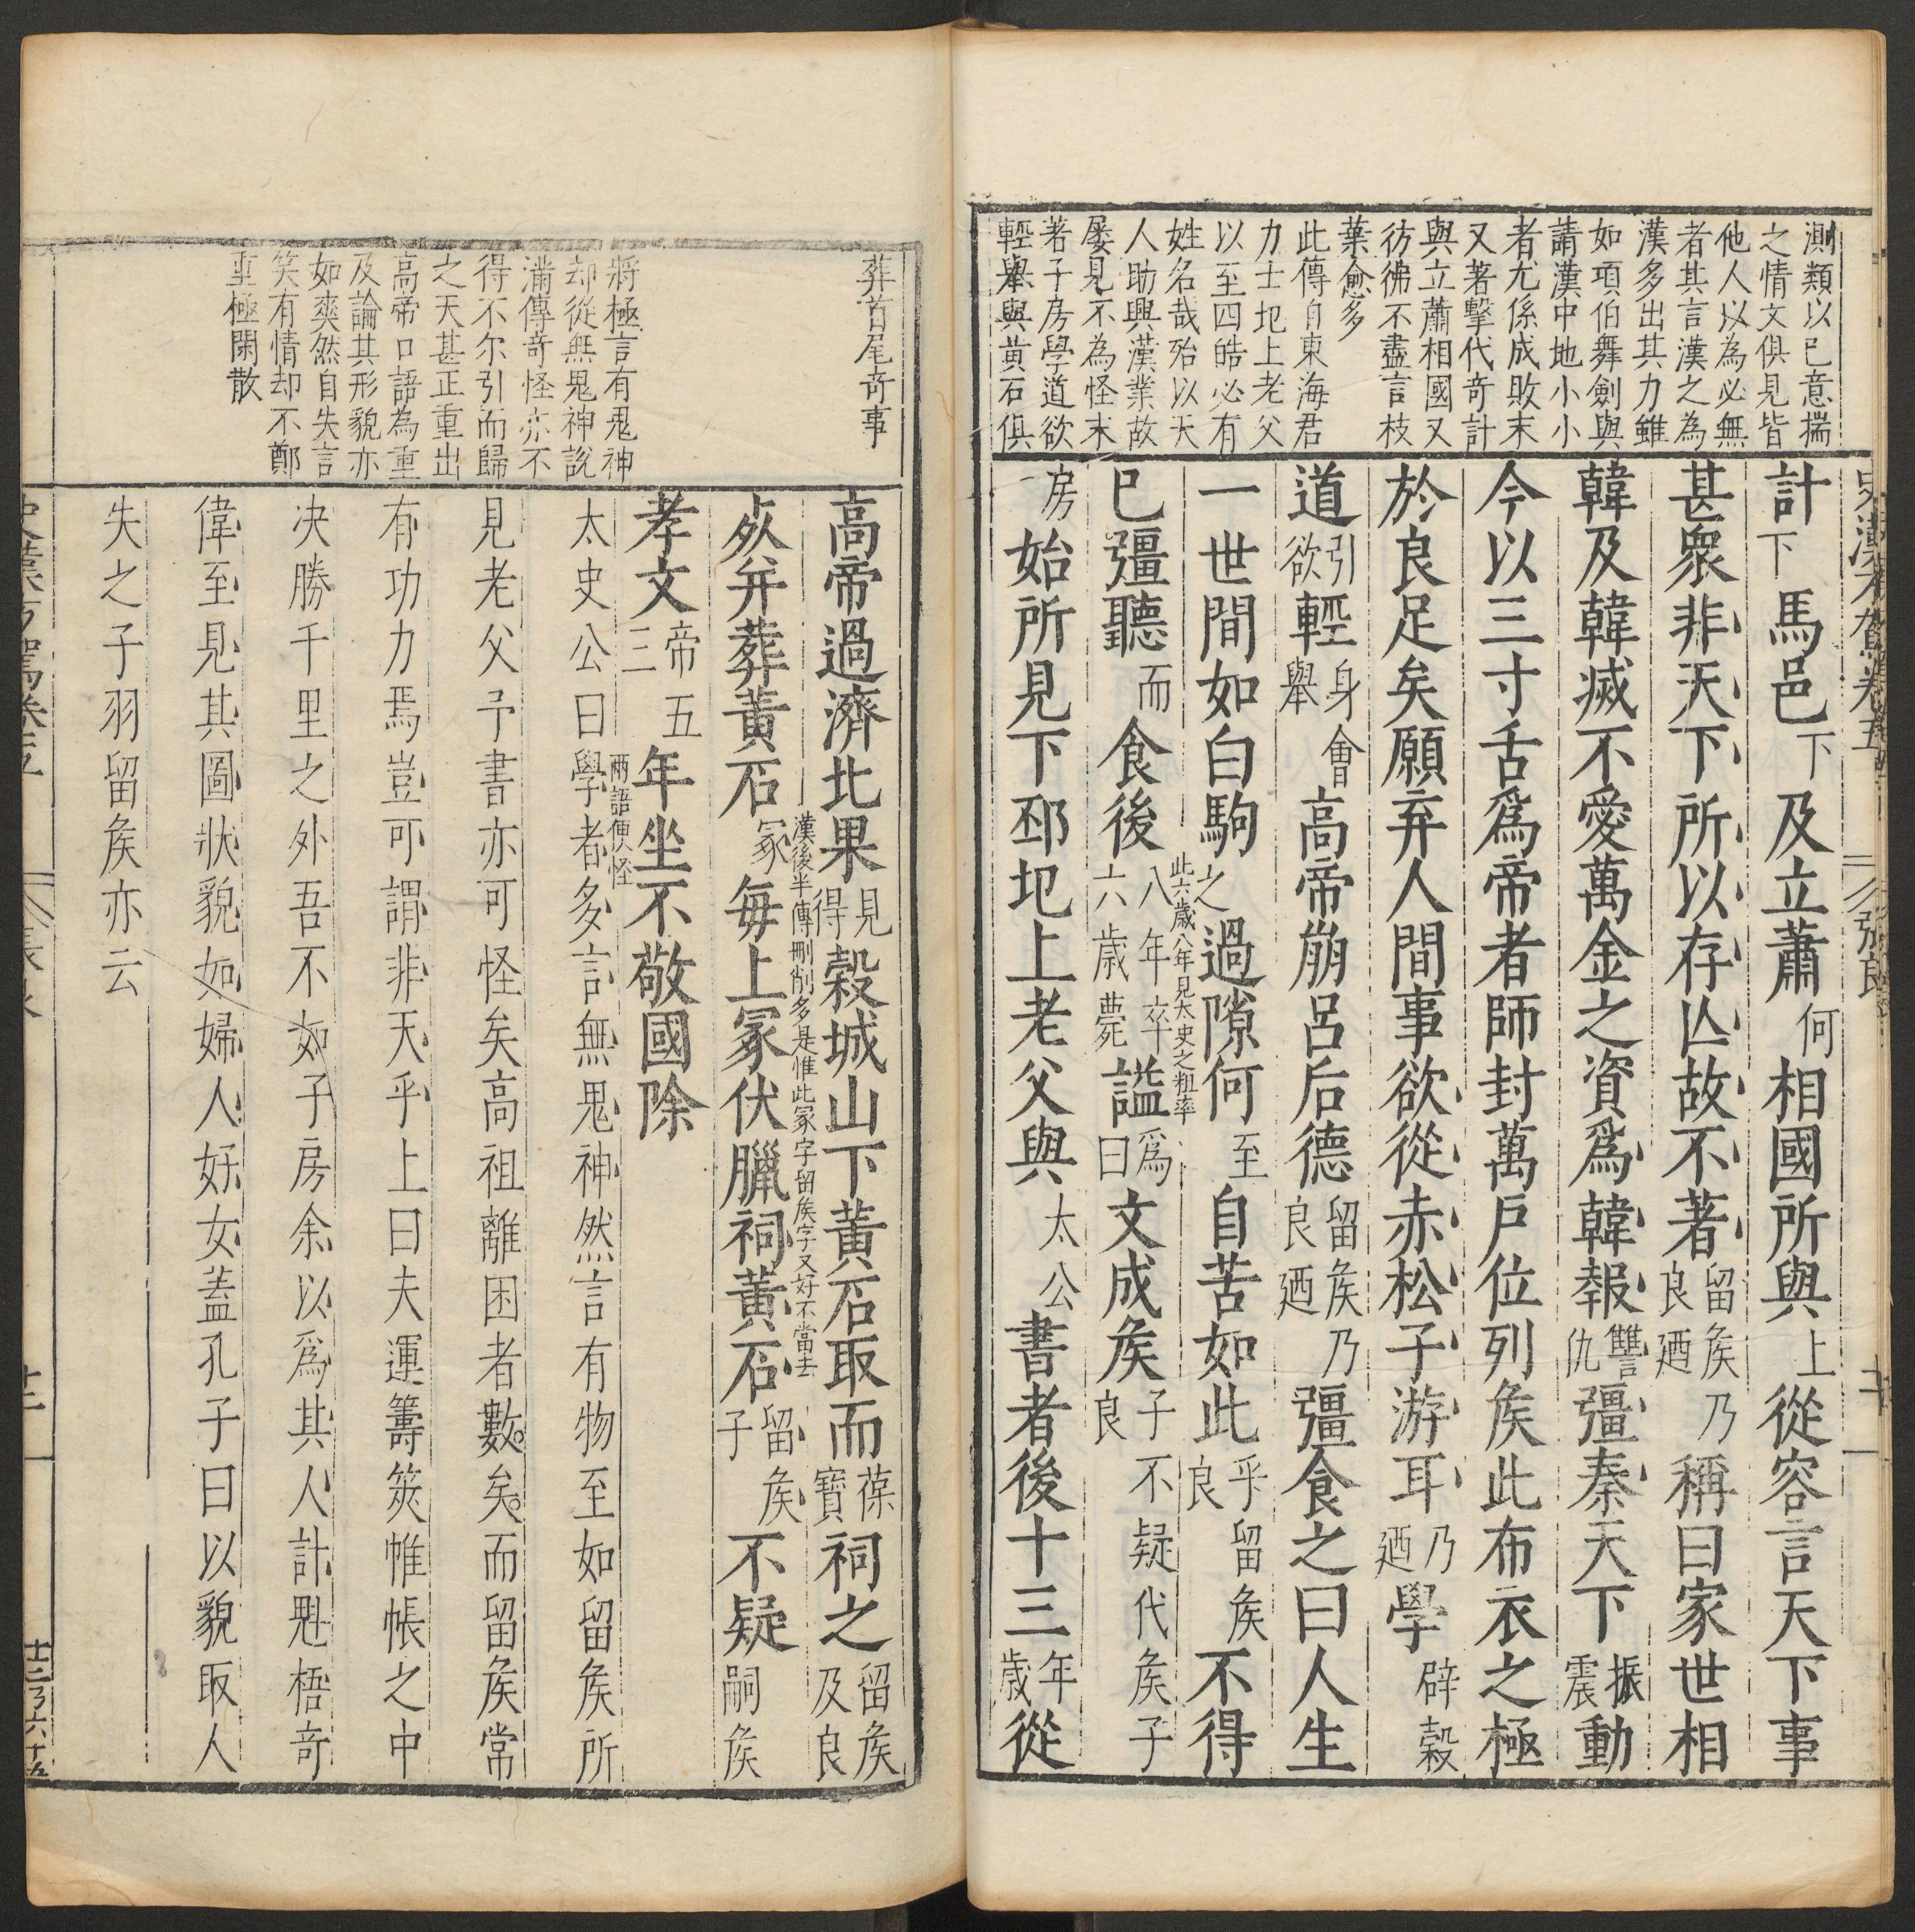 測類以已意揣
之情文俱見皆
他人以為必無
者其言漢之為
漢多出其力雖
如項伯舞劍與
請漢中地小小
者尤係成敗末
又著擊代奇計
與立蕭相國又
彷彿不盡言枝
葉愈多
此傳自東海君
力士圯上老父
以至四皓必有
姓名哉殆以天
人助興漢業故
屡見不為怪末
著子房學道欲
輕舉與黃石俱
計下馬邑下及立蕭何相國所與上從容言天下事
甚衆非天下所以存亾故不著留矦乃良廼稱曰家世相
韓及韓滅不愛萬金之資爲韓報讐仇彊秦天下振震動
今以三寸舌爲帝者師封萬戶位列矦此布衣之極
於良足矣願弃人間事欲從赤松子游耳乃廼學辟穀
道引欲輕身舉會高帝崩呂后德留矦良廼乃彊食之曰人生
一世間如白駒之過隙何至自苦如此乎良留矦不得
此六歲八年見太史之粗率
已彊聽而食後八年卒六歲薨謚爲曰文成矦子良不疑代矦子
房始所見下邳圯上老父與太公書者後十三年歲從
張良
葬首尾奇事
將極言有鬼神
却從無鬼神說
滿傳奇怪亦不
得不尔引而歸
之天甚正重出
高帝口語為重
及論其形貌亦
如爽然自失言
笑有情却不鄭
重極閑散
高帝過濟北果見得穀城山下黃石取而葆寶祠之留矦及良
漢後半傳刪削多是惟此冢字留矦字又好不當去
死并葬黃石冢每上冢伏臘祠黃石留矦子不疑嗣矦
孝文帝三五年坐不敬國除
兩語便怪
太史公曰學者多言無鬼神然言有物至如留矦所
見老父予書亦可怪矣高祖離困者數矣而留矦常
有功力焉豈可謂非天乎上曰夫運籌筴帷帳之中
决勝千里之外吾不如子房余以爲其人計魁梧奇
偉至見其圖狀貌如婦人好女蓋孔子曰以貌取人
失之子羽留矦亦云